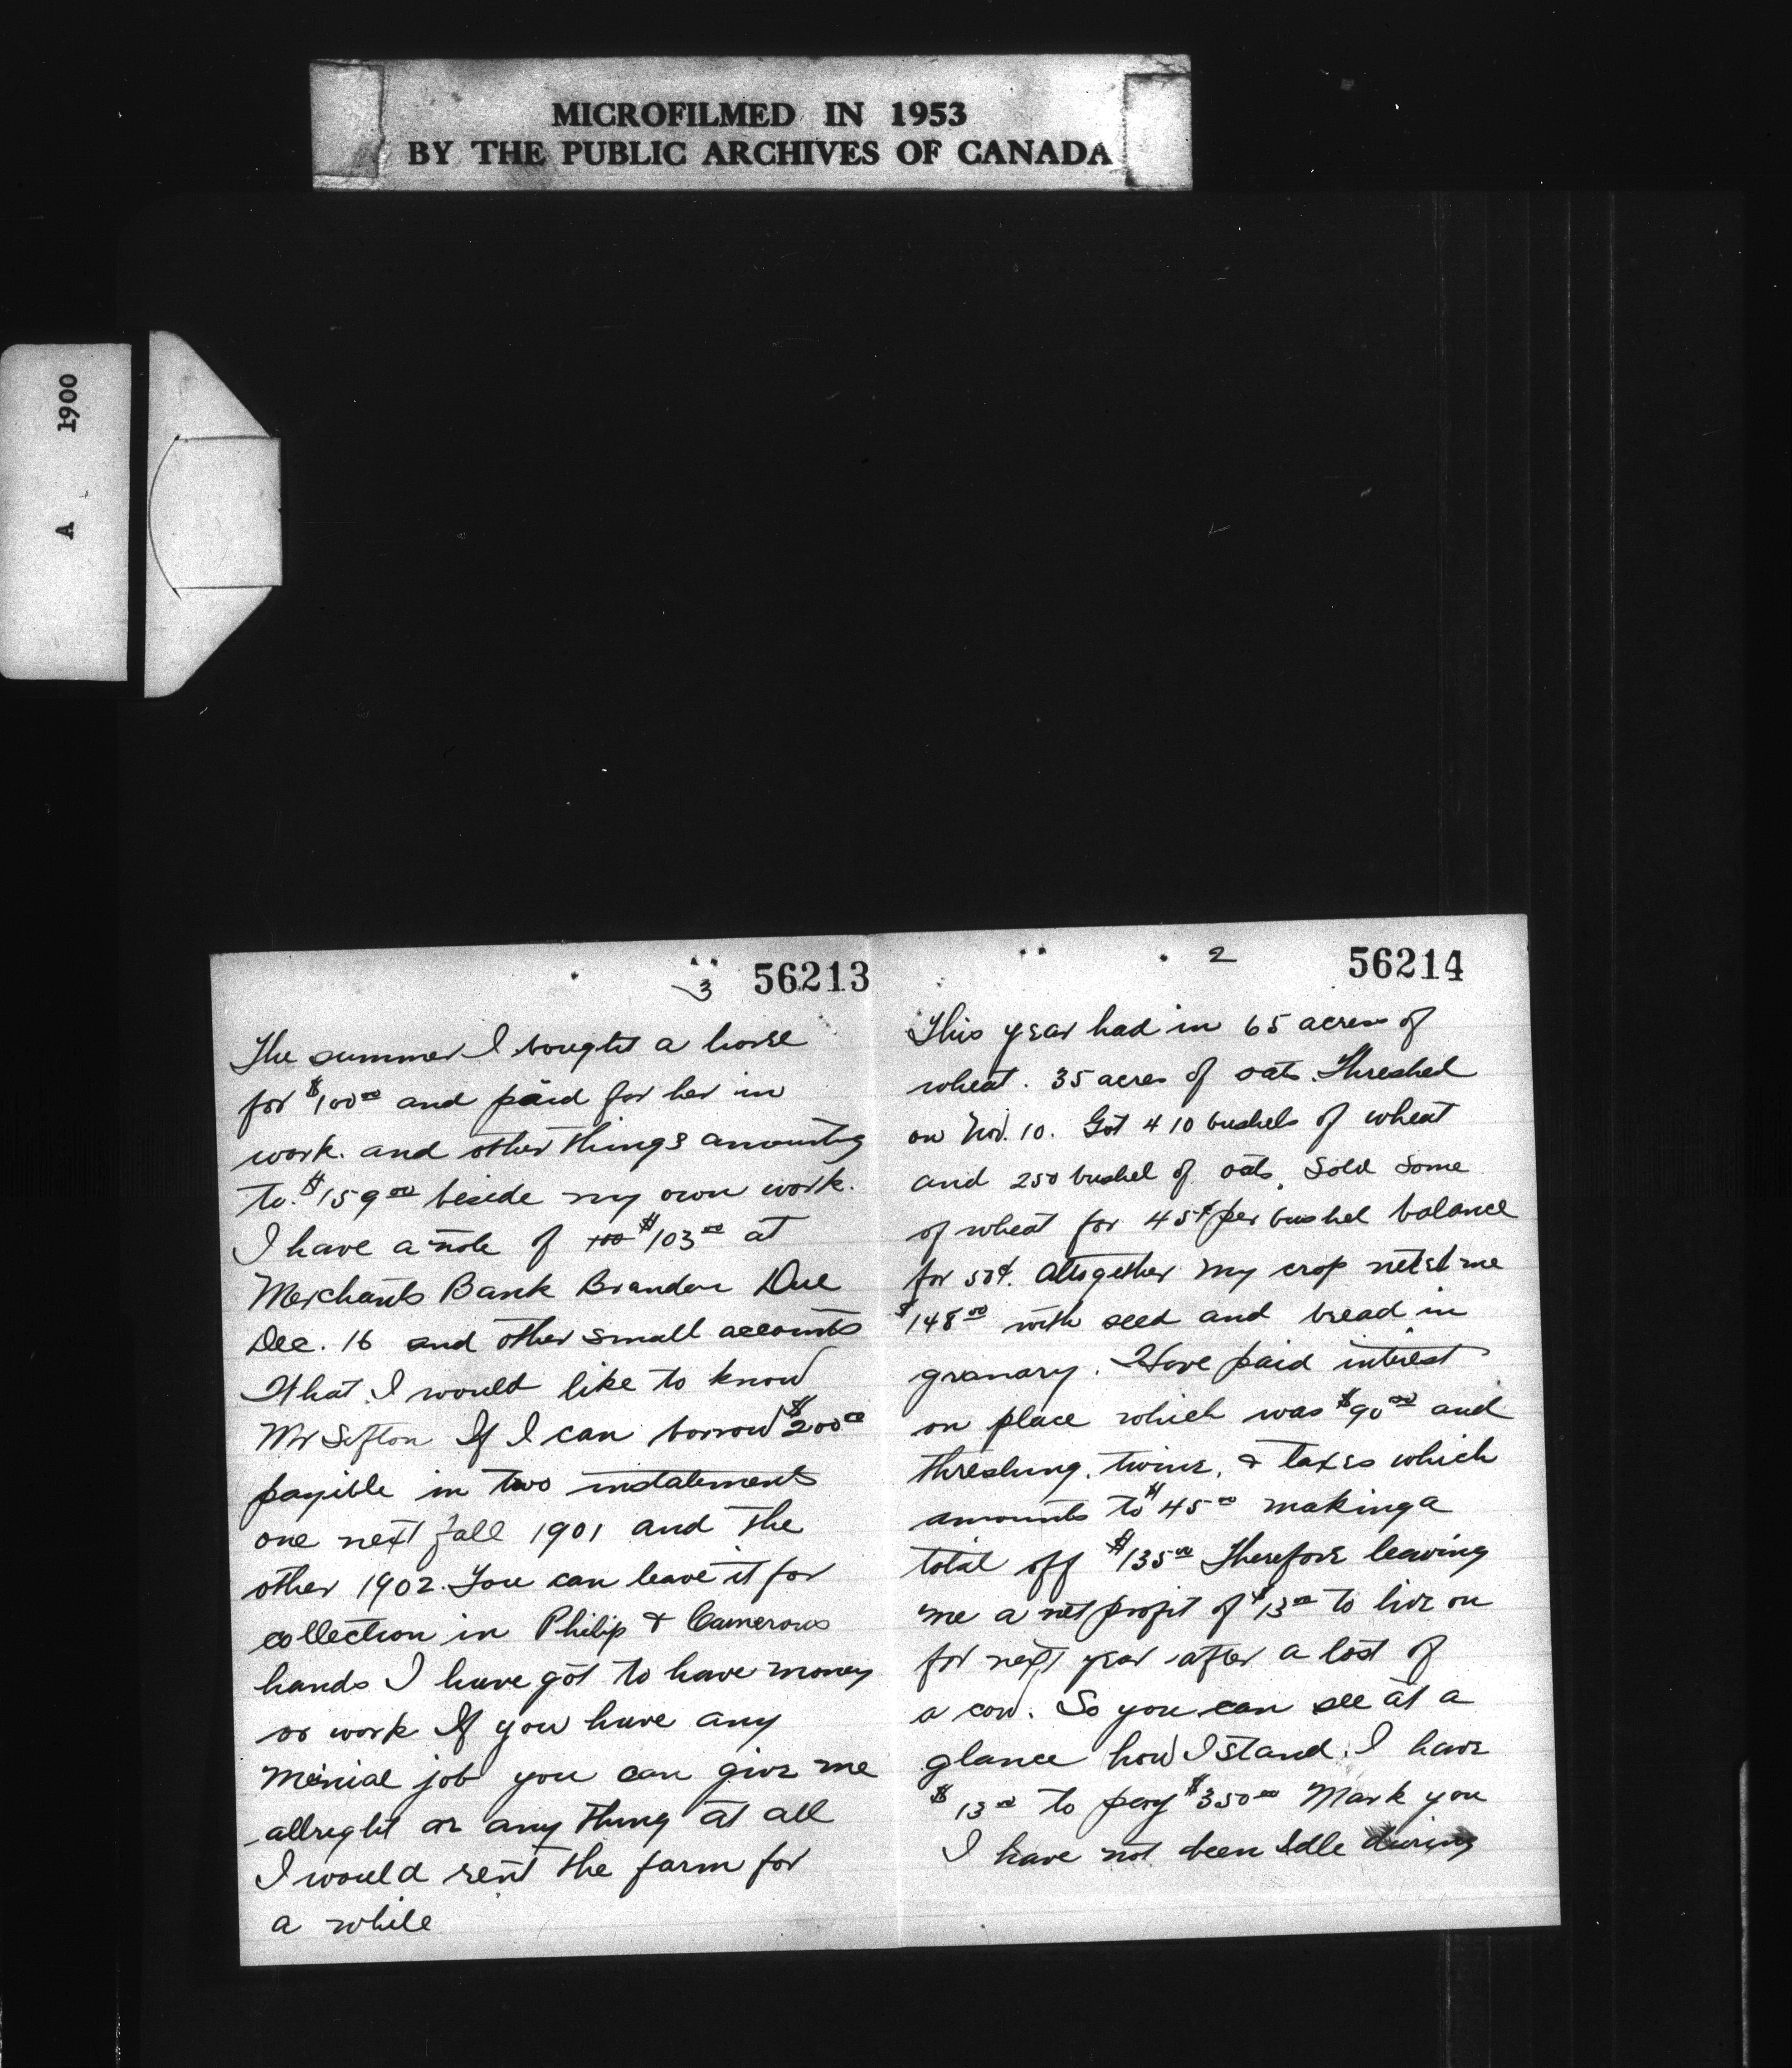 MICROFILMED IN 1953
BY THE PUBLIC ARCHIVES OF CANADA
A 1900
3 56213
The summer I bought a horse
for $100 00 and paid for her in
work. and other things amounting
to $159 00 beside my own work.
I have a note of 100 $103 00 at
Merchants Bank Brandon Due
Dec. 16 and other small accounts
What I would like to know
Mr Sifton If I can borrow $200 00
payible in two instalements
one next fall 1901 and the
other 1902. You can leave it for
collection in Philip & Camerons
hands I have got to have money
or work If you have any
menial job you can give me
allright or any thing at all
I would rent the farm for
a while
2 56214
This year had in 65 acres of
wheat. 35 acres of oats. Threshed
on Nov. 10. Got 410 bushels of wheat
and 250 bushel of oats. Sold some
of wheat for 45¢ per bushel balance
for 50¢. Altogether my crop neted me
$148 00 with seed and bread in
granary. Have paid interest
on place which was $90 00 and
threshing, twine, & taxes which
amounts to $45 00 making a
total off $135 00 Therefore leaving
me a net profit of $13 00 to live on
for next year after a lost of
a cow. So you can see at a
glance how I stand. I have
$13 00 to pay $350 00 Mark you
I have not been Idle during